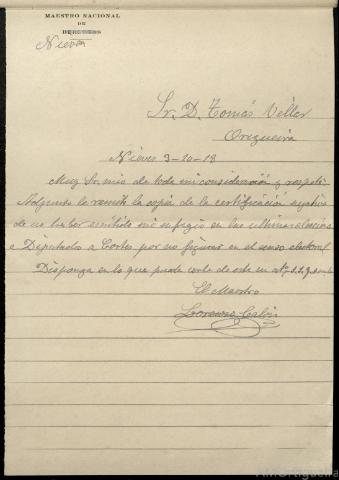 MAESTRO NACIONAL
DE
Nieves
Sr. D. Tomás Villar
Orzqueira
Nieves 3-10-18
Muy Sr. mio de toda mi consideración y respeto:
le remito la copia de la certificación
de no haber emitido mi sufragio en las últimas elecciones
a Diputados a Cortes por no figurar en el censo electoral
Disponga en lo que puede como de este su
El Maestro
Lorenzo